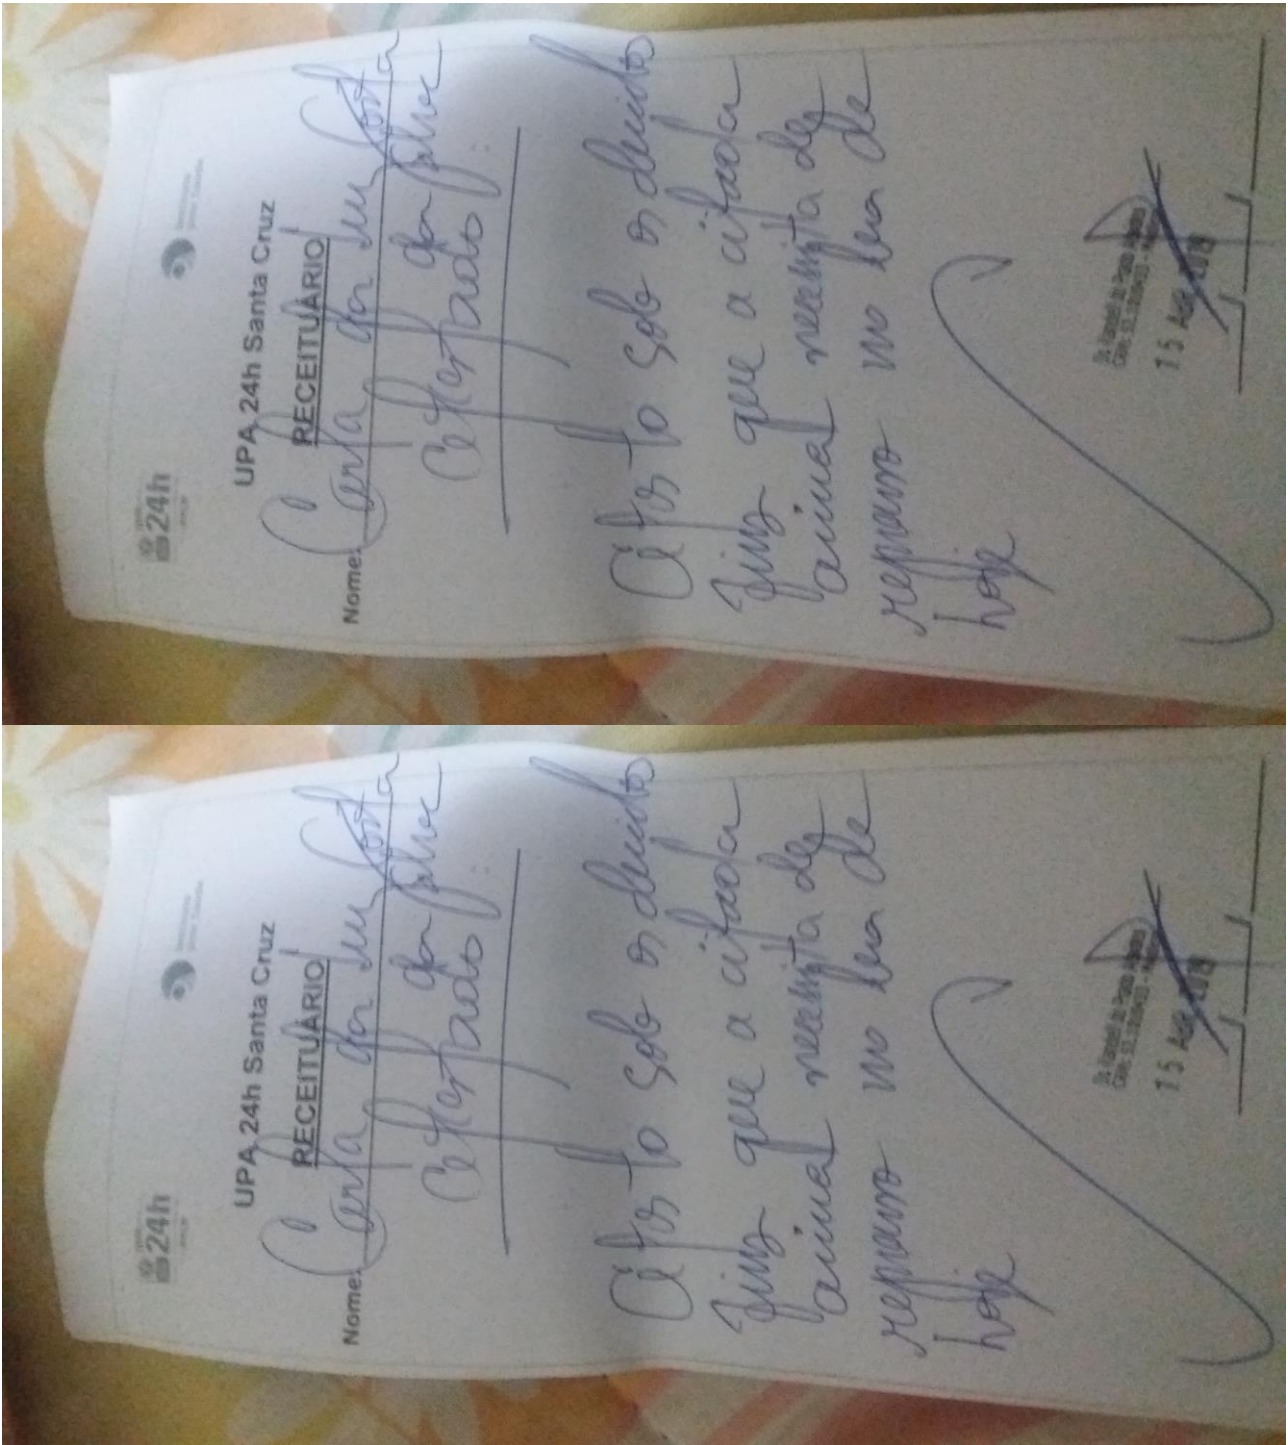 24h
UPA 24h Santa Cruz
RECEITUÁRIO
Nome: Carla da Luz Costa
da Silva
Atestado
Atesto sob os devidos
fins que a citada
acima necessita de
repouso no dia de
hoje
15 AGO 2019
24h
UPA 24h Santa Cruz
RECEITUÁRIO
Nome: Carla da Luz Costa
da Silva
Atestado
Atesto sob os devidos
fins que a citada
acima necessita de
repouso no dia de
hoje
15 AGO 2019